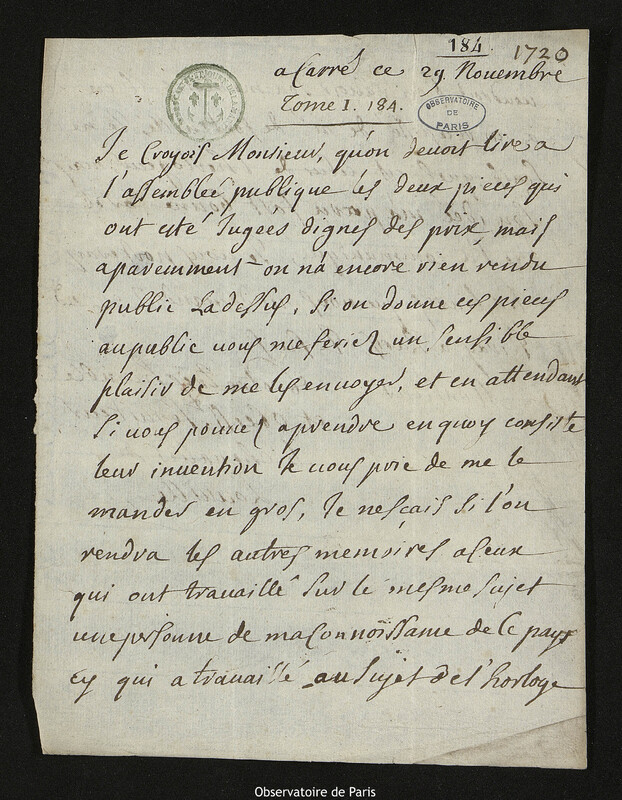 184 1720
a Carré ce 29. Novembre
Tome I. 184.
OBSERVATOIRE
DE
PARIS
Je Croyois Monsieur, qu'on devoit lire a
l'assembleé publique les deux pieces qui
ont esté Jugées dignes des prix, mais
aparemment on n'a encore rien rendu
public Ladessus, Si on donne ces pieces
aupublic vous me feriez un sensible
plaisir de me les envoyer, et en attendant
Si vous pouvez aprendre enquoy consiste
leur invention Je vous prie de me le
mander en gros, Je nesçais si l'on
rendra les autres memoires aceux
qui ont travaillé sur le mesme sujet
une personne de ma Connoissance de Ce pays
cy qui a travaillé au Sujet de l'horloge
Observatoire de Paris